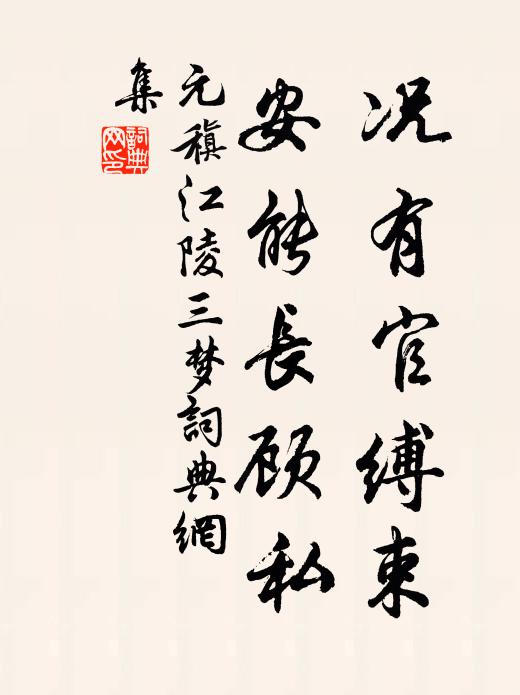 况有官缚束
安能長顾私
元稹江陵三梦詞典網
集
詞典
网印